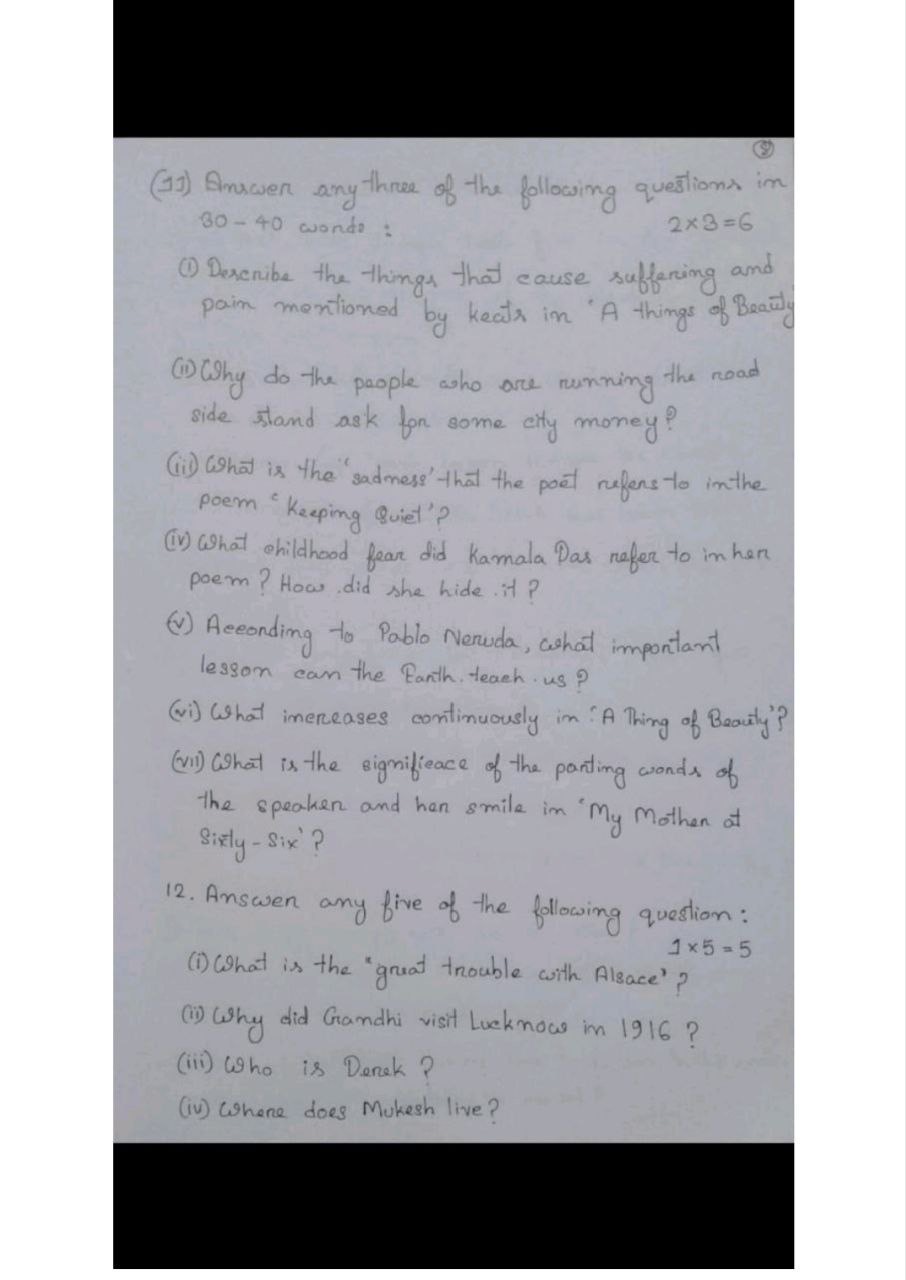 9
(11) Answer any three of the following questions in
30 - 40 words : 2×3=6
(i) Describe the things that cause suffering and
pain mentioned by keats in 'A things of Beauty
(ii) Why do the people who are running the road
side stand ask for some city money?
(iii) What is the 'sadness' that the poet refers to in the
poem 'Keeping Quiet'?
(iv) What childhood fear did Kamala Das refer to in her
poem? How did she hide it?
(v) According to Pablo Neruda, what important
lesson can the Earth teach us?
(vi) What increases continuously in 'A Thing of Beauty'?
(vii) What is the significace of the parting words of
the speaker and her smile in 'My Mother at
Sixty-Six'?
12. Answer any five of the following question :
1×5=5
(i) What is the "great trouble with Alsace'?
(ii) Why did Gandhi visit Lucknow in 1916?
(iii) Who is Derek?
(iv) Where does Mukesh live?